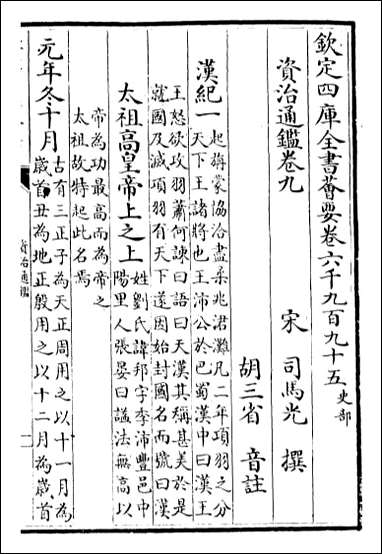 欽定四庫全書薈要卷六千九百九十五 史部
資治通鑑卷九
宋 司馬光 撰
胡三省 音註
漢紀一
起旃蒙協洽盡柔兆涒灘凡二年項羽之分
天下王諸將也王沛公於巴蜀漢中曰漢王
王怒欲攻羽蕭何諫曰語曰天漢其稱甚美於是
就國及滅項羽有天下遂因始封國名而號曰漢
太祖高皇帝上之上
姓劉氏諱邦字季沛豐邑中
陽里人張晏曰諡法無高以
帝為功最高而為帝之
太祖故特起此名焉
元年冬十月
古有三正子為天正周用之以十一月為
歲首丑為地正殷用之以十二月為歲首
資治通鑑